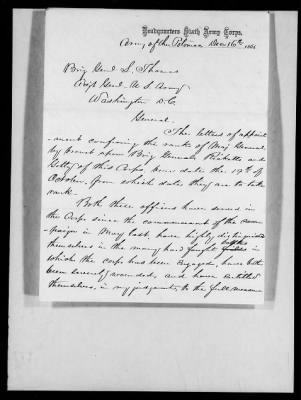 Headquarters Sixth Army Corps,
Army of the Potomac Dec 16th 1864
Brig Genl L. Thomas
Adjt Genl U S Army
Washington D.C.
General.
The letters of appoint
ment confering the rank of Maj General
by brevet upon Brig Generals Ricketts and
Getty of this Corps bear date the 19th of
October, from which date they are to take
rank.
Both these officers have served in
the Corps since the commencement of the cam
paign in May last, have highly distinguished
themselves in the many hard fought battles in
which the corps has been engaged, have both
been severely wounded, and have entitled
themselves, in my judgment, to the full measure